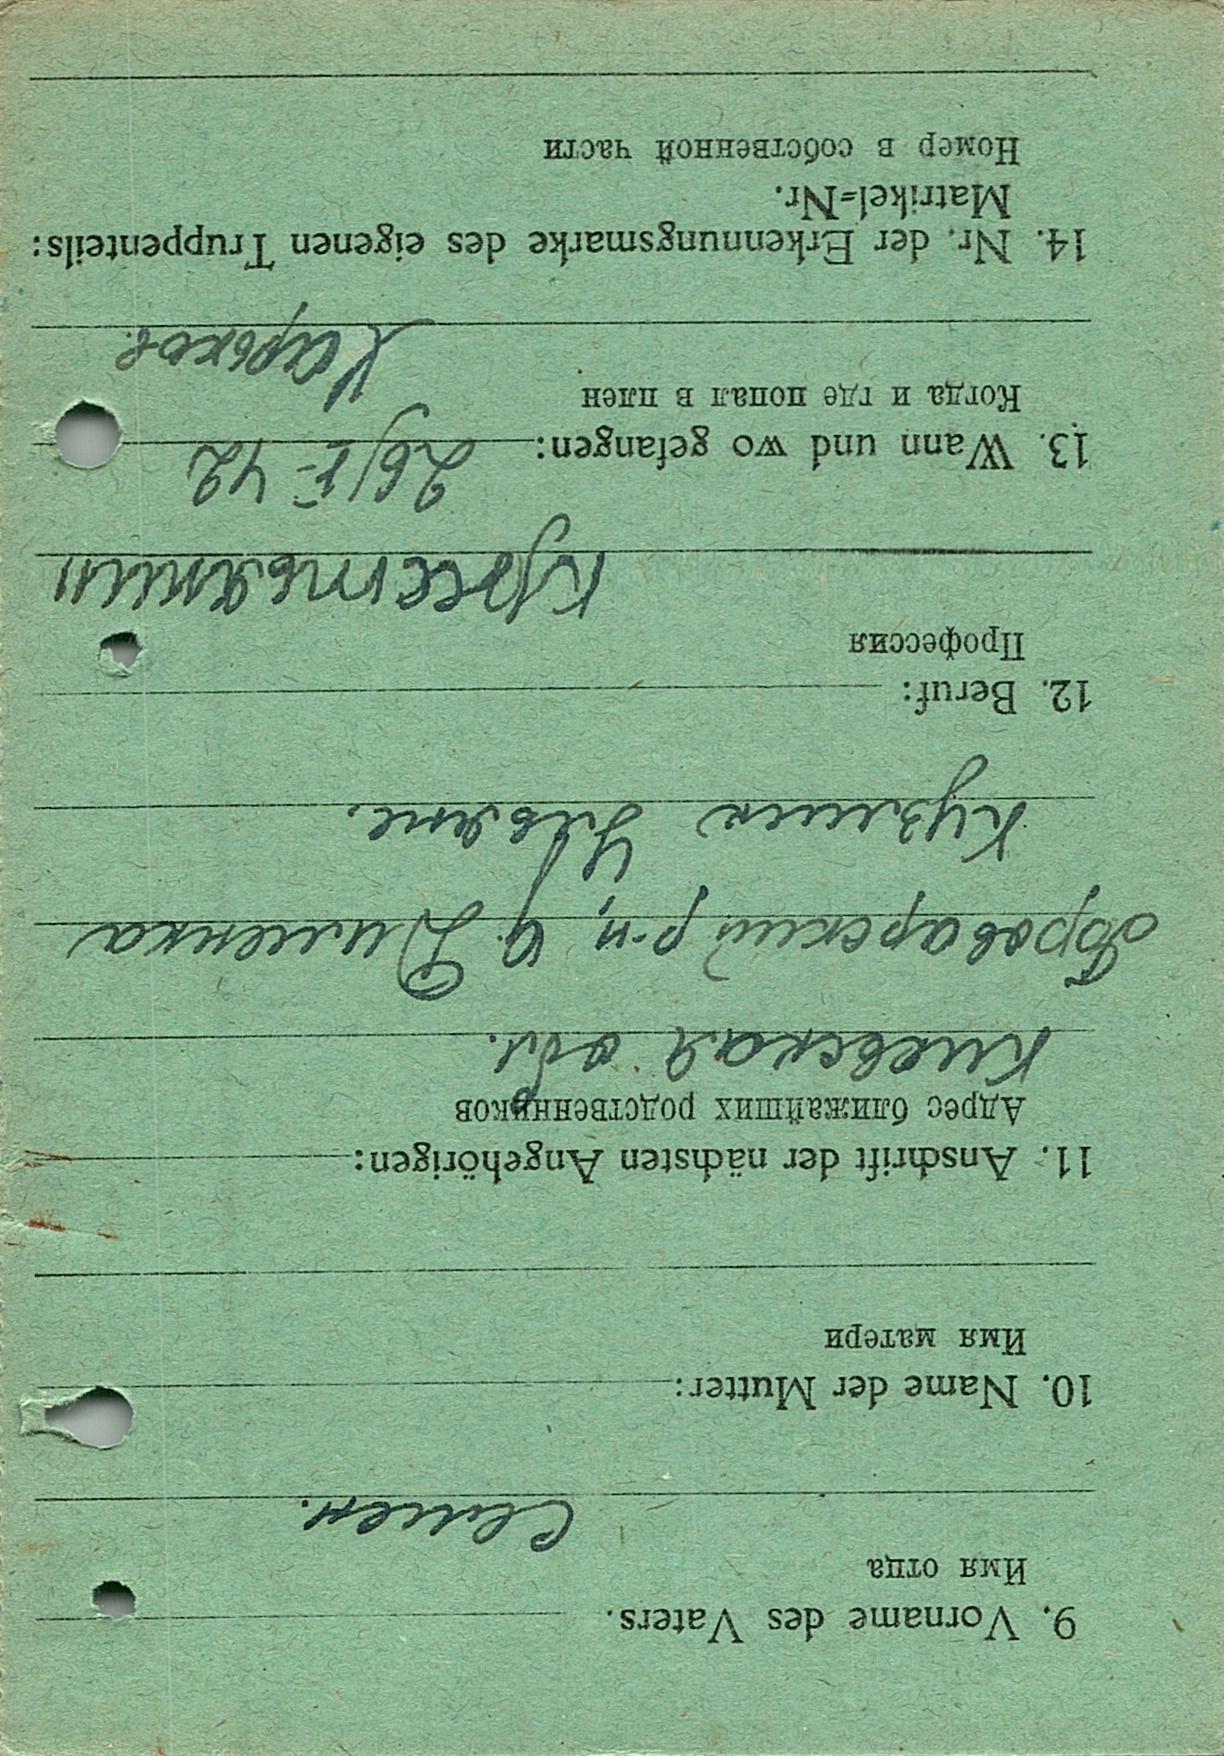 9. Vorname des Vaters.
Имя отца
Семен.
10. Name der Mutter:
Имя матери
11. Anschrift der nächsten Angehörigen:
Адрес ближайших родственников
Киевская обл.
Броварский р-н, д. Дименка
Кузмен Ульяне.
12. Beruf:
Профессия
Крестьянин
13. Wann und wo gefangen: 26/V-42
Когда и где попал в плен
Харьков.
14. Nr. der Erkennungsmarke des eigenen Truppenteils:
Matrikel=Nr.
Номер в собственной части